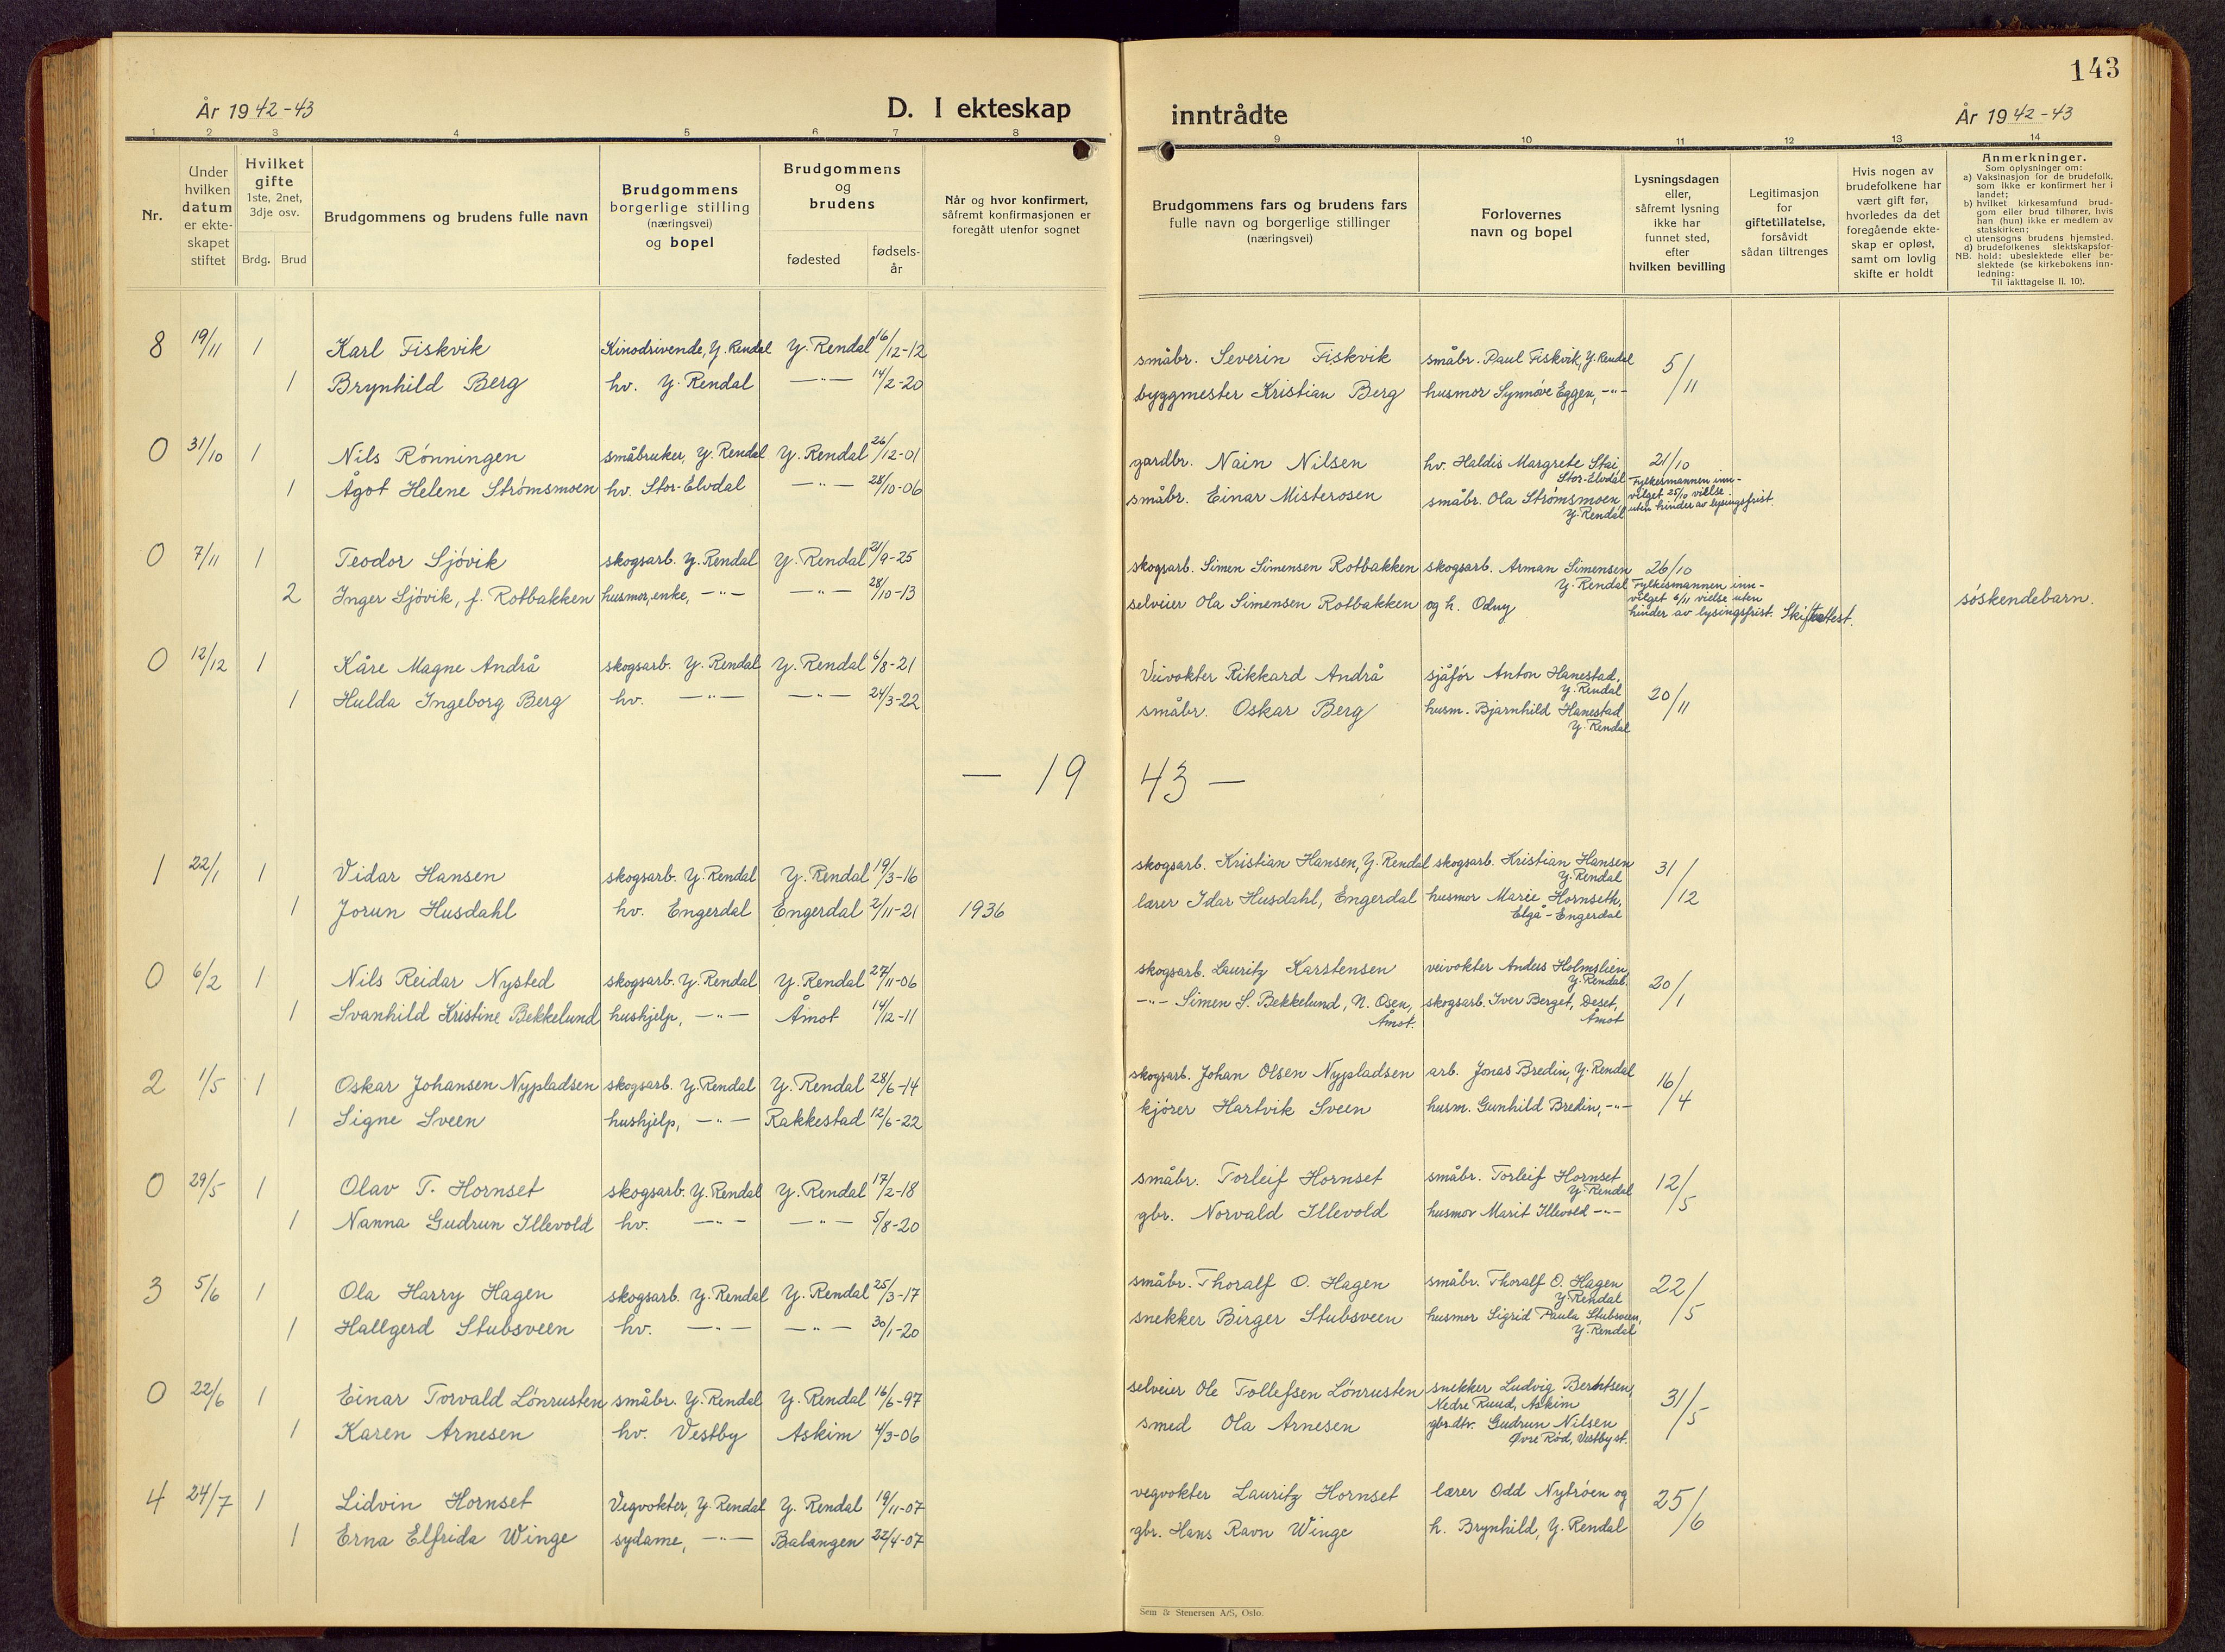 143
År 1942-43
D. I ekteskap
inntrådte
År 1942-43
1 2 3 4 5 6 7 8 9 10 11 12 13 14
Nr.
Under hvilken datum er ekteskapet stiftet
Hvilket gifte 1ste, 2net, 3dje osv.
Brdg. Brud
Brudgommens og brudens fulle navn
Brudgommens borgerlige stilling (næringsvei) og bopel
Brudgommens og brudens
fødested
fødselsår
Når og hvor konfirmert, såfremt konfirmasjonen er foregått utenfor sognet
Brudgommens fars og brudens fars fulle navn og borgerlige stillinger (næringsvei)
Forlovernes navn og bopel
Lysningsdagen eller, såfremt lysning ikke har funnet sted, efter hvilken bevilling
Legitimasjon for giftetillatelse, forsåvidt sådan tiltrenges
Hvis nogen av brudefolkene har vært gift før, hvorledes da det foregående ekteskap er opløst, samt om lovlig skifte er holdt
Anmerkninger.
Som oplysninger om:
a) Vaksinasjon for de brudefolk, som ikke er konfirmert her i landet;
b) hvilket kirkesamfund brudgom eller brud tilhører, hvis han (hun) ikke er medlem av statskirken;
c) utensogns brudens hjemsted.
d) brudefolkenes slektskapsforhold: ubeslektede eller beslektede (se kirkebokens innledning:
NB.
Til iakttagelse II. 10).
8 19/11 1 Karl Fiskvik Kinodrivende, Y. Rendal Y. Rendal 16/12-12 småbr. Severin Fiskvik småbr. Paul Fiskvik, Y. Rendal 5/11
1 Brynhild Berg hv. Y. Rendal —"— 14/2-20 byggmester Kristian Berg husmor Synnøve Eggen, -"-
0 31/10 1 Nils Rønningen småbruker, Y. Rendal Y. Rendal 26/12-01 gardbr. Nain Nilsen hv. Haldis Margrete Stai, Stor-Elvdal 21/10
1 Ågot Helene Strømsmoen hv. Stor-Elvdal —"— 28/10-06 småbr. Einar Misterosen småbr. Ola Strømsmoen, Y. Rendal Fylkesmannen innvilget 25/10 vielse uten hinder av lysingsfrist.
0 7/11 1 Teodor Sjøvik skogsarb. Y. Rendal Y. Rendal 21/9-25 skogsarb. Simen Simensen Rotbakken skogsarb. Arman Simensen Y. Rendal 26/10
2 Inger Sjøvik, f. Rotbakken husmor, enke, —"— —"— 28/10-13 selveier Ola Simensen Rotbakken og h. Odny Fylkesmannen innvilget 6/11 vielse uten hinder av lysingsfrist. Skifteattest. søskendebarn.
0 12/12 1 Kåre Magne Andrå skogsarb. Y. Rendal Y. Rendal 6/8-21 Veivokter Rikkard Andrå sjåfør Anton Hanestad, Y. Rendal 20/11
1 Hulda Ingeborg Berg hv. —"— —"— 24/3-22 småbr. Oskar Berg husm. Bjarnhild Hanestad Y. Rendal
— 19 43 —
1 22/1 1 Vidar Hansen skogsarb. Y. Rendal Y. Rendal 19/3-16 skogsarb. Kristian Hansen, Y. Rendal skogsarb. Kristian Hansen Y. Rendal 31/12
1 Jorun Husdahl hv. Engerdal Engerdal 2/11-21 1936 lærer Idar Husdahl, Engerdal husmor Marie Hornseth, Elgå - Engerdal
0 6/2 1 Nils Reidar Nysted skogsarb. Y. Rendal Y. Rendal 27/11-06 skogsarb. Lauritz Karstensen veivokter Anders Holmslien, Y. Rendal. 20/1
1 Svanhild Kristine Bekkelund hushjelp, —"— Åmot 14/12-11 -"- Simen S. Bekkelund, N. Osen, Åmot. skogsarb. Iver Berget, Deset, Åmot
2 1/5 1 Oskar Johansen Nypladsen skogsarb. Y. Rendal Y. Rendal 28/6-14 skogsarb. Johan Olsen Nypladsen arb. Jonas Bredin, Y. Rendal 16/4
1 Signe Sveen hushjelp, —"— Rakkestad 12/6-22 kjører Hartvik Sveen husm. Gunhild Bredin, -"-
0 29/5 1 Olav T. Hornset skogsarb. Y. Rendal Y. Rendal 17/2-18 småbr. Torleif Hornset småbr. Torleif Hornset Y. Rendal 12/5
1 Nanna Gudrun Illevold hv. —"— —"— 5/8-20 gbr. Norvald Illevold husmor Marit Illevold -"-
3 5/6 1 Ola Harry Hagen skogsarb. Y. Rendal Y. Rendal 25/3-17 småbr. Thoralf O. Hagen småbr. Thoralf O. Hagen Y. Rendal 22/5
1 Hallgerd Stubsveen hv. —"— —"— 30/1-20 snekker Birger Stubsveen husmor Sigrid Paula Stubsveen, Y. Rendal
0 22/6 1 Einar Torvald Lønrusten småbr. Y. Rendal Y. Rendal 16/6-97 selveier Ole Tollefsen Lønrusten snekker Ludvig Berntsen, Nedre Ruud, Askim 31/5
1 Karen Arnesen hv. Vestby Askim 4/3-06 smed Ola Arnesen gbr.dtr. Gudrun Nilsen Øvre Rød, Vestby st.
4 24/7 1 Lidvin Hornset Vegvokter, Y. Rendal Y. Rendal 19/11-07 vegvokter Lauritz Hornset lærer Odd Nytrøen og 25/6
1 Erna Elfrida Winge sydame, —"— Balangen 22/4-07 gbr. Hans Ravn Winge h. Brynhild, Y. Rendal
Sem & Stenersen A/S, Oslo.